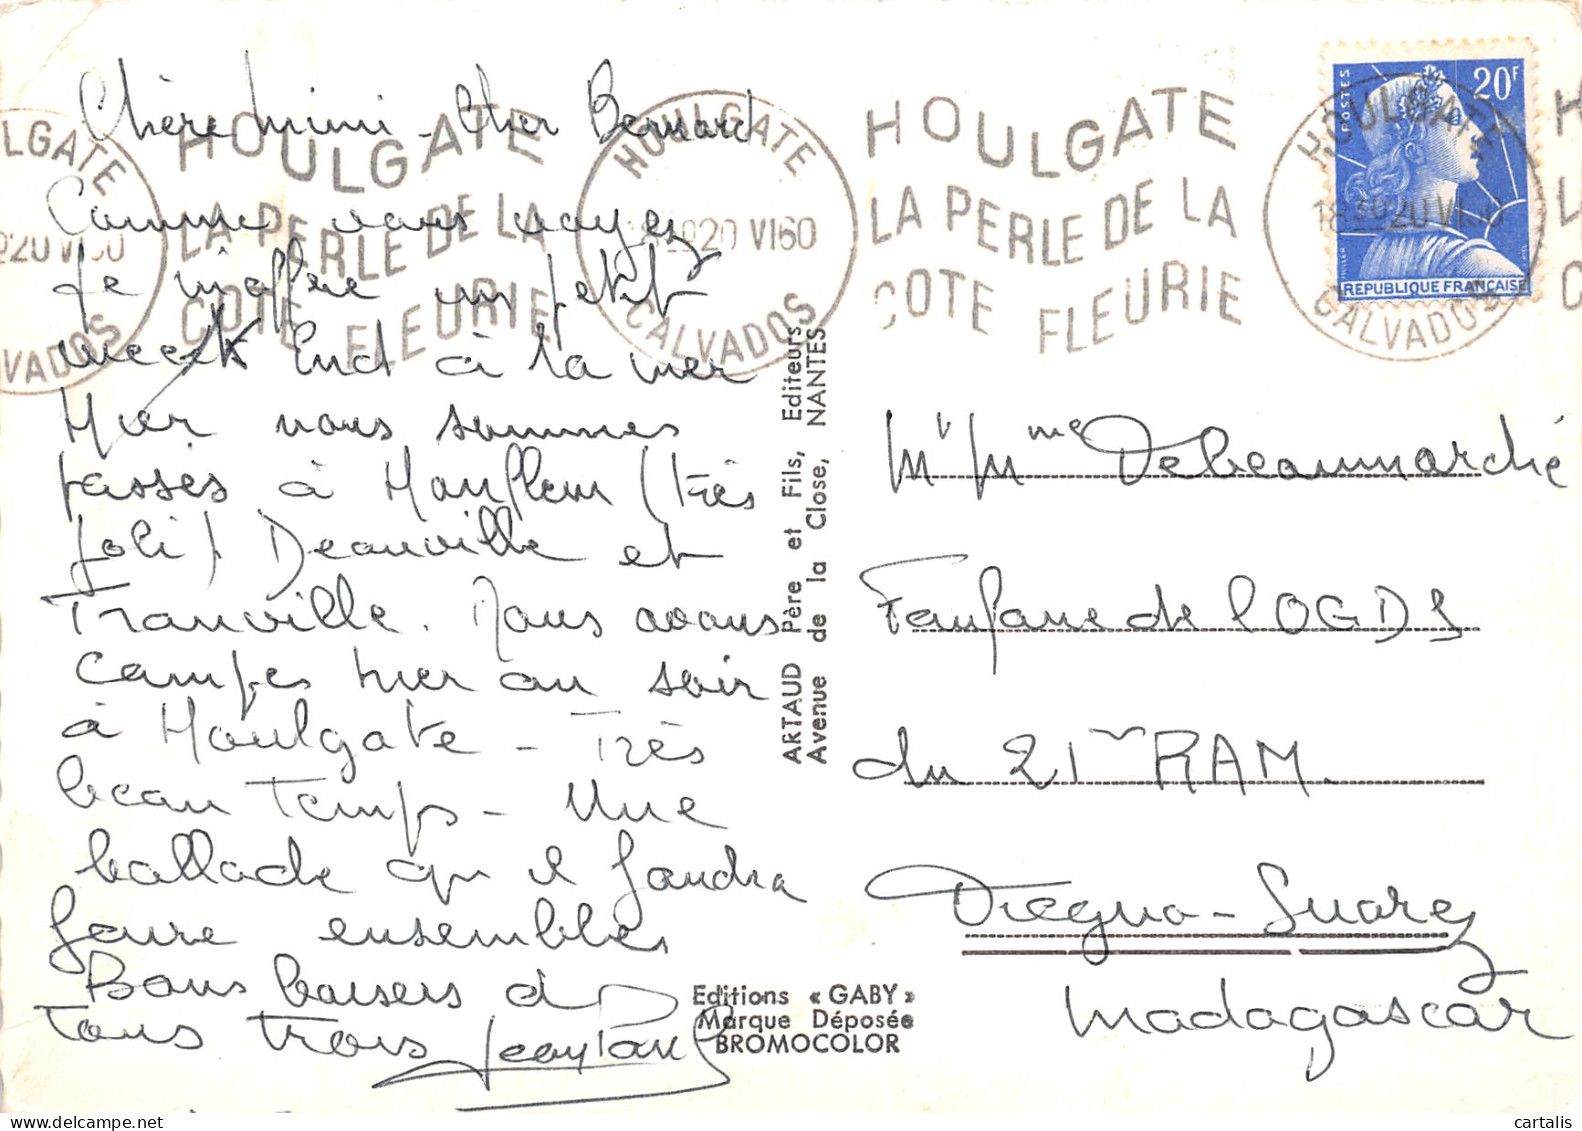 Chère Mimi - Cher Bernard
Comme vous voyez
je m'offre un petit
week End à la mer
Hier nous sommes
passés à Honfleur (très
joli) Deauville et
Trouville. Nous avons
campés hier au soir
à Houlgate - Très
beau temps - Une
ballade qu'il faudra
faire ensembles
Bons baisers de
tous trois Jean Paul
HOULGATE
LA PERLE DE LA
COTE FLEURIE
HOULGATE
20 VI 60
CALVADOS
HOULGATE
LA PERLE DE LA
COTE FLEURIE
HOULGATE
18 30 20 VI 60
CALVADOS
POSTES
20F
REPUBLIQUE FRANÇAISE
ARTAUD Père et Fils, Editeurs
Avenue de la Close, NANTES
Mr Mme Debeaumarché
Fanfare de l'OGDS
du 21e RAM.
Diéguo-Suarez
Madagascar
Editions « GABY »
Marque Déposée
BROMOCOLOR
cartalis